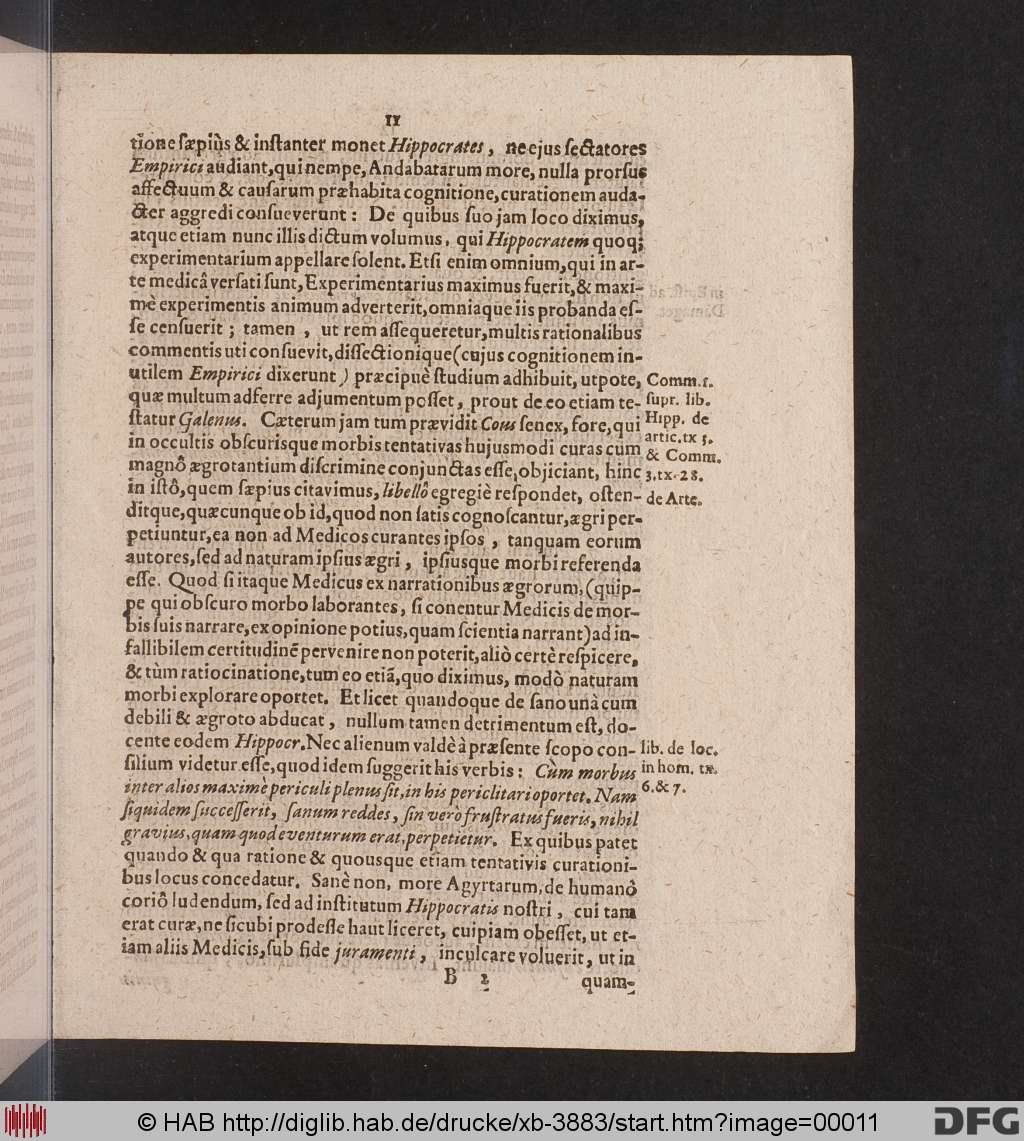 11
tione sæpiùs & inſtanter monet Hippocrates, ne ejus ſectatores
Empirici audiant, qui nempe, Andabatarum more, nulla prorſus
affectuum & cauſarum præhabita cognitione, curationem auda-
cter aggredi conſueverunt: De quibus ſuo jam loco diximus,
atque etiam nunc illis dictum volumus, qui Hippocratem quoq;
experimentarium appellare ſolent. Etſi enim omnium, qui in ar-
te medicâ verſati ſunt, Experimentarius maximus fuerit, & maxi-
mè experimentis animum adverterit, omniaque iis probanda eſ-
ſe cenſuerit; tamen, ut rem aſſequeretur, multis rationalibus
commentis uti conſuevit, diſſectionique (cujus cognitionem in-
utilem Empirici dixerunt) præcipuè ſtudium adhibuit, utpote,
quæ multum adferre adjumentum poſſet, prout de eo etiam te-
ſtatur Galenus. Cæterum jam tum prævidit Cous ſenex, fore, qui
in occultis obſcurisque morbis tentativas hujusmodi curas cum
magnô ægrotantium diſcrimine conjunctas eſſe, objiciant, hinc
in iſtô, quem ſæpius citavimus, libellô egregiè reſpondet, oſten-
ditque, quæcunque ob id, quod non ſatis cognoſcantur, ægri per-
petiuntur, ea non ad Medicos curantes ipſos, tanquam eorum
autores, ſed ad naturam ipſius ægri, ipſiusque morbi referenda
eſſe. Quod ſi itaque Medicus ex narrationibus ægrorum, (quip-
pe qui obſcuro morbo laborantes, ſi conentur Medicis de mor-
bis ſuis narrare, ex opinione potius, quam ſcientia narrant) ad in-
fallibilem certitudinẽ pervenire non poterit, aliò certè reſpicere,
& tùm ratiocinatione, tum eo etiã, quo diximus, modò naturam
morbi explorare oportet. Et licet quandoque de ſano unà cum
debili & ægroto abducat, nullum tamen detrimentum eſt, do-
cente eodem Hippocr. Nec alienum valdè à præſente ſcopo con-
ſilium videtur eſſe, quod idem ſuggerit his verbis: Cùm morbus
inter alios maximè periculi plenus ſit, in his periclitari oportet. Nam
ſiquidem ſucceſſerit, ſanum reddes, ſin verò fruſtratus fueris, nihil
gravius, quam quod eventurum erat, perpetietur. Ex quibus patet
quando & qua ratione & quousque etiam tentativis curationi-
bus locus concedatur. Sanè non, more Agyrtarum, de humanô
coriô ludendum, ſed ad inſtitutum Hippocratis noſtri, cui tam
erat curæ, ne ſicubi prodeſſe haut liceret, cuipiam obeſſet, ut et-
iam aliis Medicis, ſub fide juramenti, inculcare voluerit, ut in
B 2 quam-
Comm. 1.
ſupr. lib.
Hipp. de
artic. tx 5.
& Comm.
3. tx. 28.
de Arte.
lib. de loc.
in hom. tx.
6. & 7.
© HAB http://diglib.hab.de/drucke/xb-3883/start.htm?image=00011
DFG